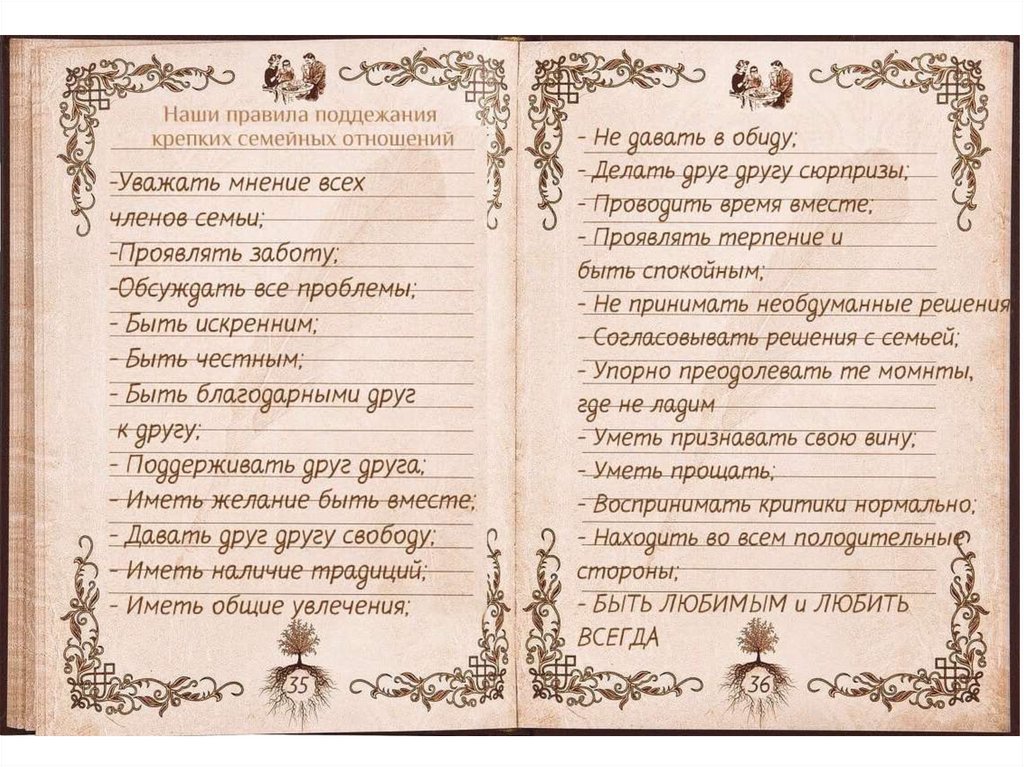 Наши правила поддежания
крепких семейных отношений
-Уважать мнение всех
членов семьи;
-Проявлять заботу;
-Обсуждать все проблемы;
- Быть искренним;
- Быть честным;
- Быть благодарными друг
к другу;
- Поддерживать друг друга;
- Иметь желание быть вместе;
- Давать друг другу свободу;
- Иметь наличие традиций;
- Иметь общие увлечения;
35
- Не давать в обиду;
- Делать друг другу сюрпризы;
- Проводить время вместе;
- Проявлять терпение и
быть спокойным;
- Не принимать необдуманные решения
- Согласовывать решения с семьей;
- Упорно преодолевать те момнты,
где не ладим
- Уметь признавать свою вину;
- Уметь прощать;
- Воспринимать критики нормально;
- Находить во всем полодительные
стороны;
- БЫТЬ ЛЮБИМЫМ и ЛЮБИТЬ
ВСЕГДА
36